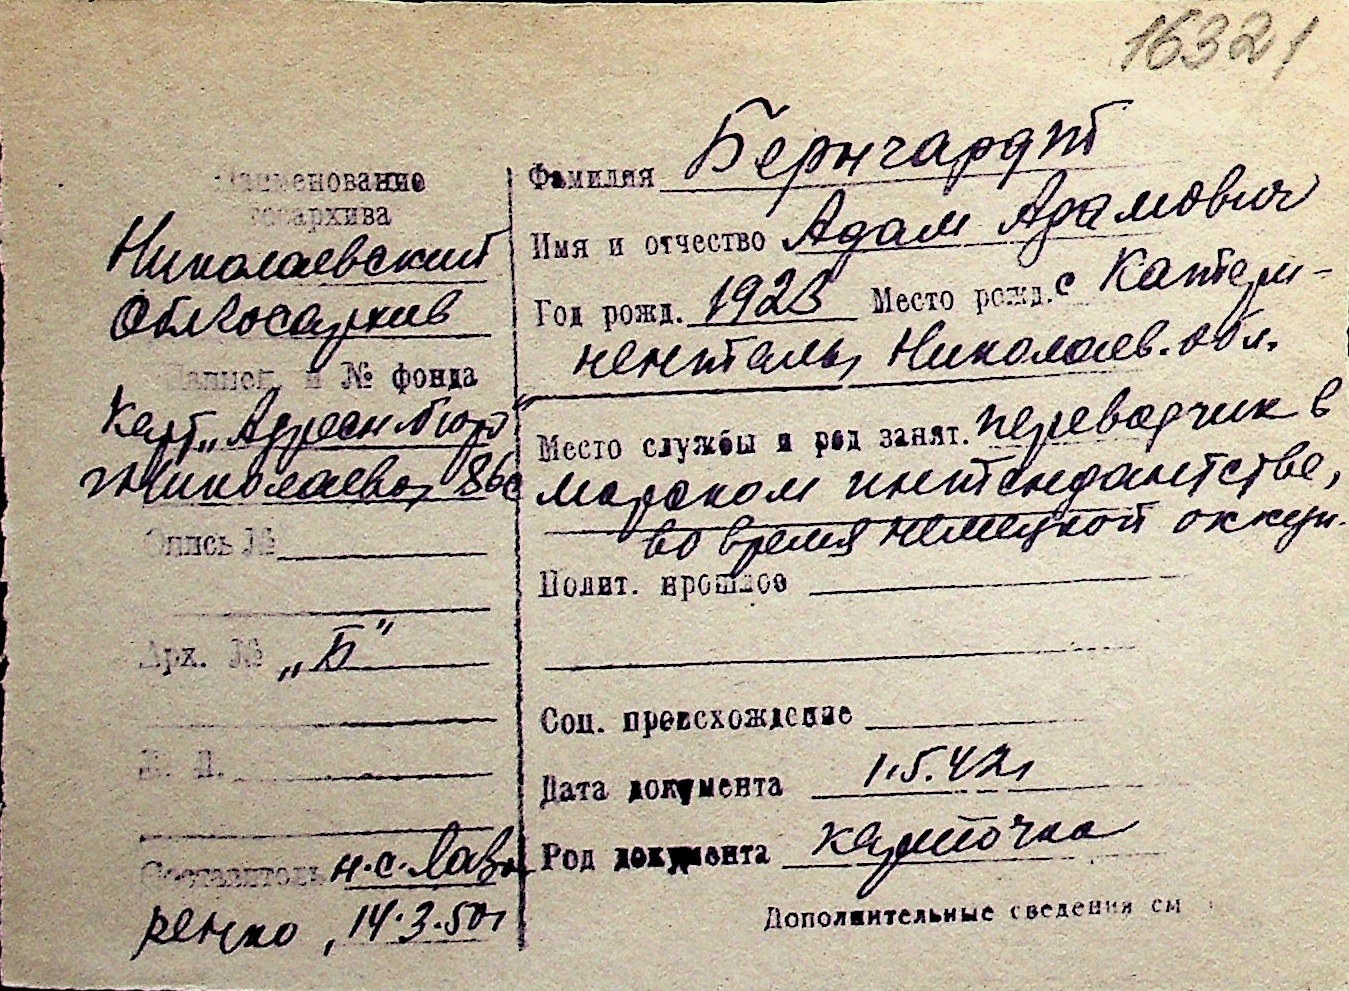 16321
Наименование
госархива
Николаевский
Облгосархив
Назван. и № фонда
Карт. „Адресн. бюро"
г. Николаева, 86с
Опись №
Арх. № „Б"
Л. Л.
Составитель н.с. Лав-
ренко, 14.3.50г
Фамилия Бернгардт
Имя и отчество Адам Адамович
Год рожд. 1923 Место рожд. с Катери-
ненталь, Николаев. обл.
Место службы и род занят. переводчик в
морском интендантстве,
во время немецкой оккуп.
Полит. прошлое
Соц. происхождение
Дата документа 1.5.42г
Род документа карточка
Дополнительные сведения см